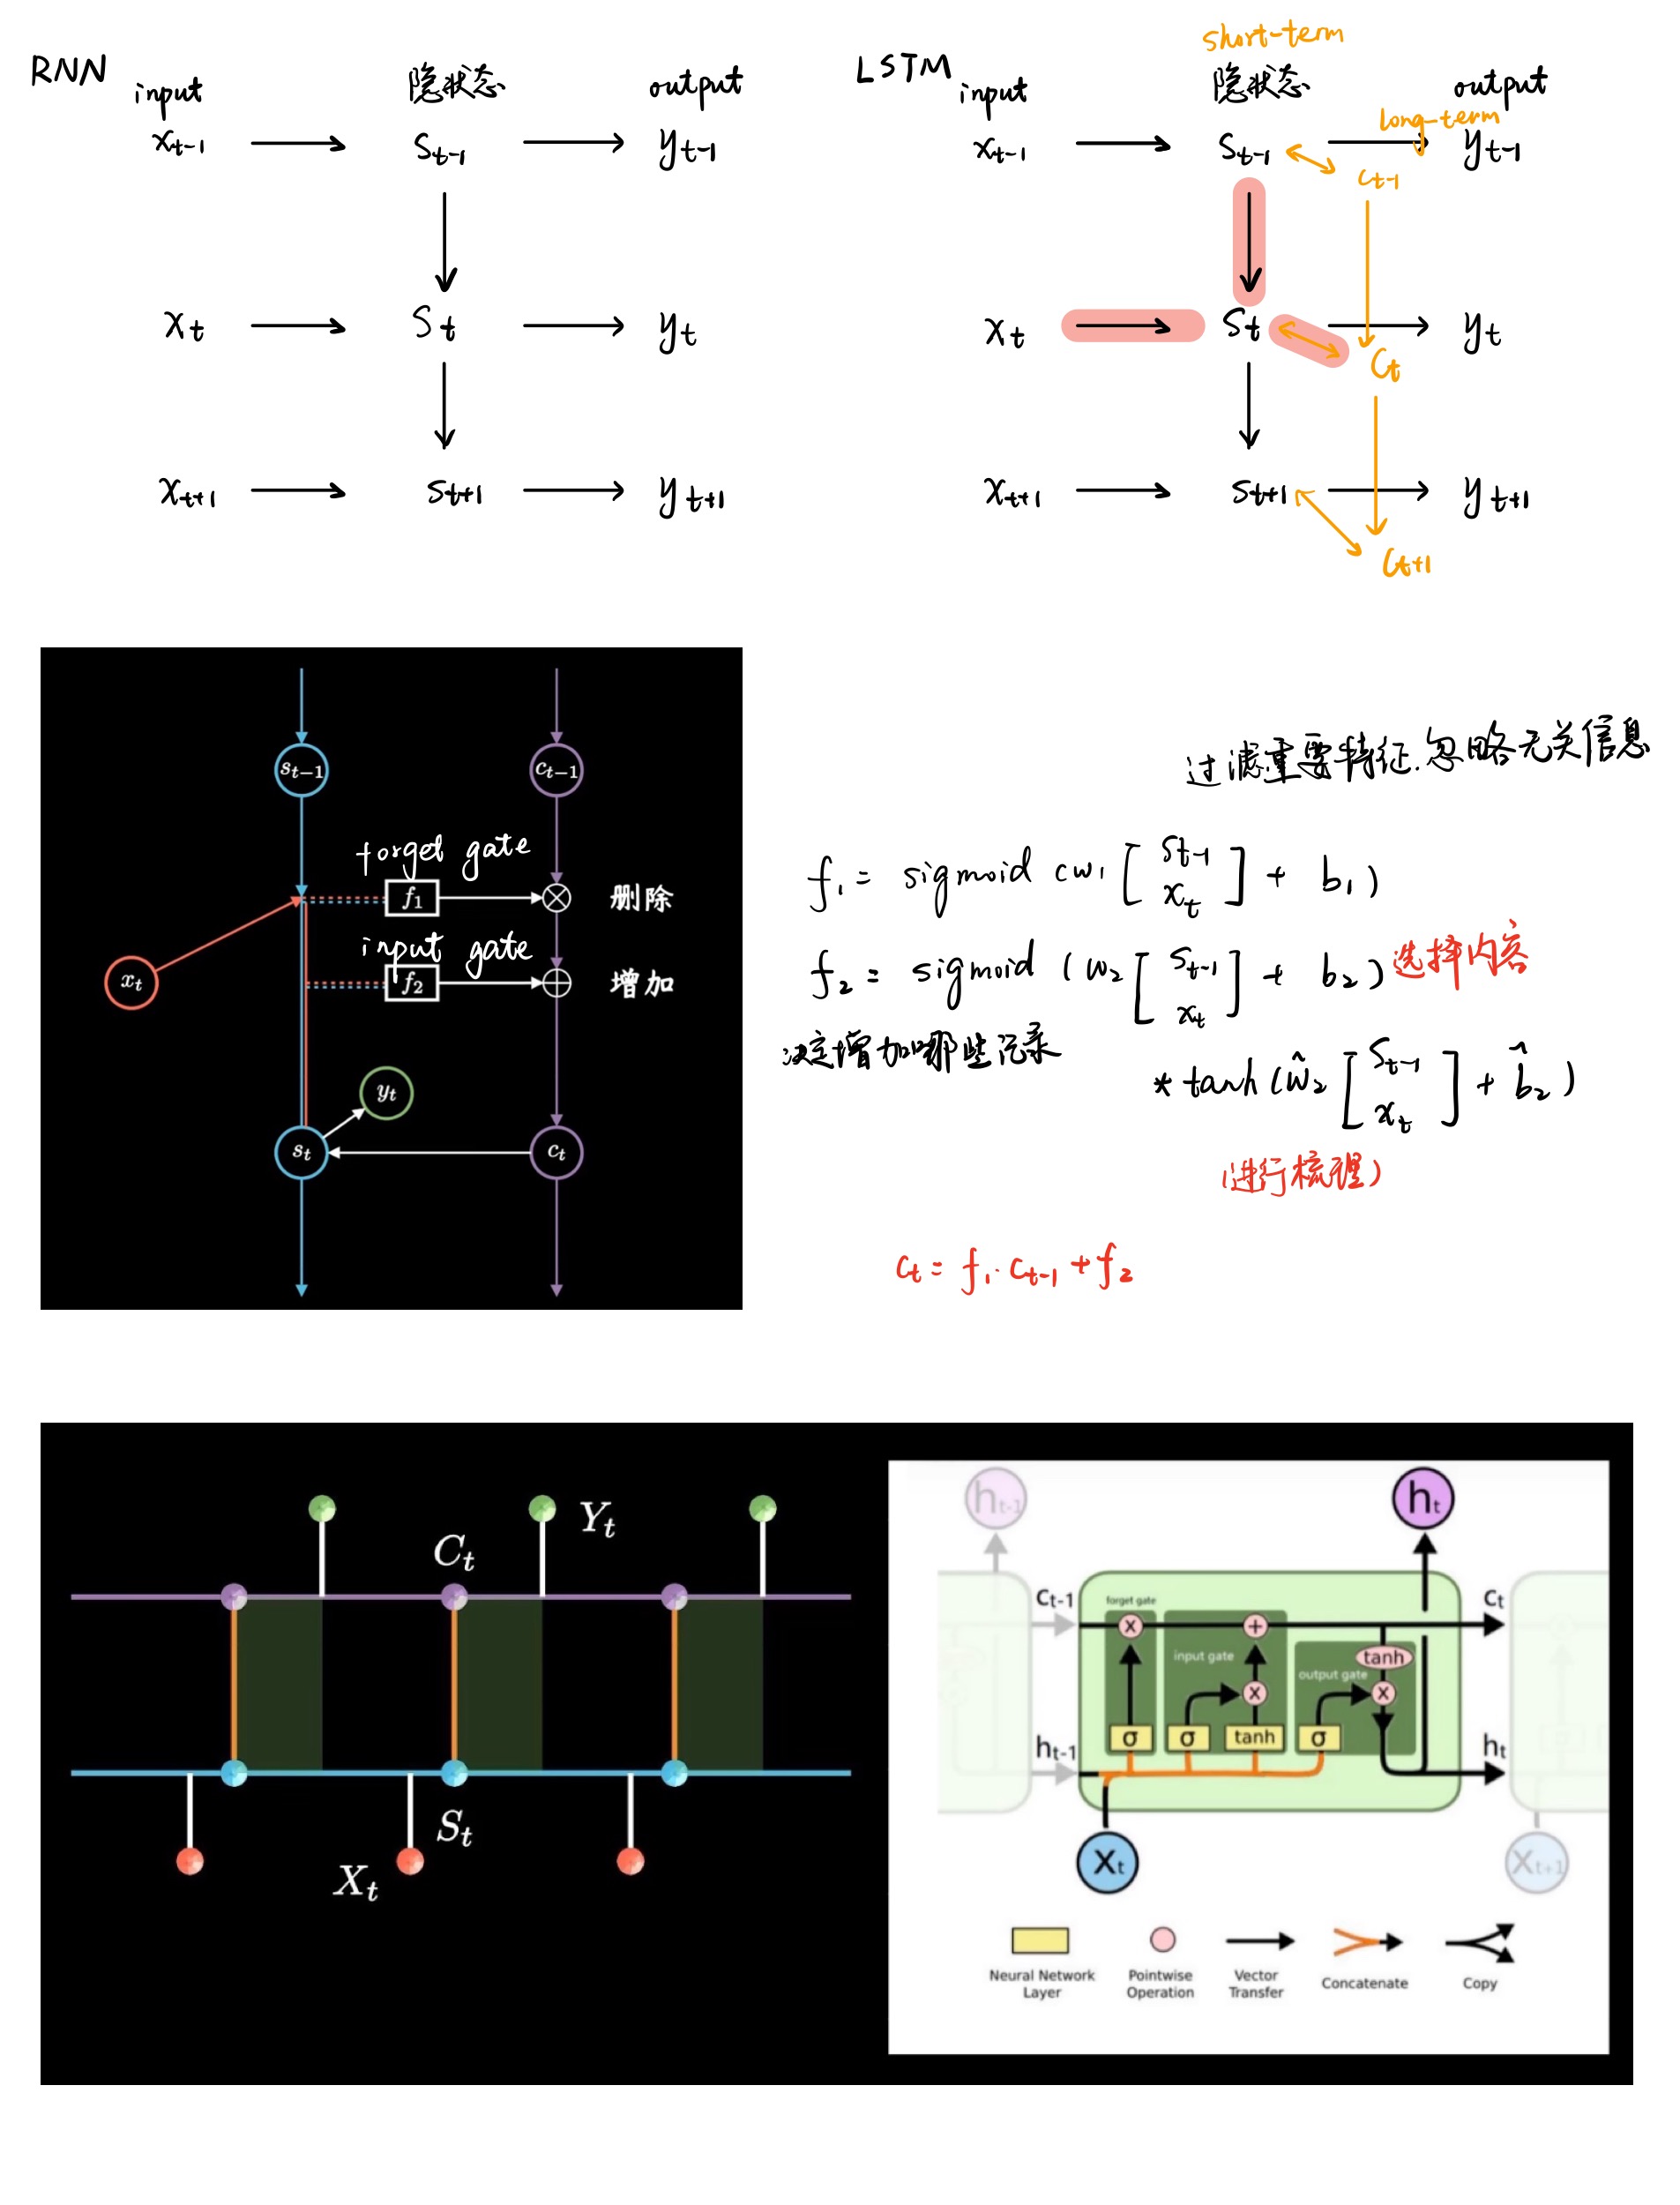 RNN
input 隐状态 output
x_{t-1} → s_{t-1} → y_{t-1}
x_t → s_t → y_t
x_{t+1} → s_{t+1} → y_{t+1}
LSTM
short-term
input 隐状态 output
long-term
x_{t-1} → s_{t-1} → y_{t-1}
c_{t-1}
x_t → s_t → y_t
c_t
x_{t+1} → s_{t+1} → y_{t+1}
c_{t+1}
s_{t-1} c_{t-1}
forget gate
f_1 删除
input gate
x_t f_2 增加
y_t
s_t c_t
过滤重要特征.忽略无关信息
f_1 = sigmoid (w_1 [s_{t-1} x_t] + b_1)
f_2 = sigmoid (w_2 [s_{t-1} x_t] + b_2) 选择内容
决定增加哪些记录
* tanh (ŵ_2 [s_{t-1} x_t] + b̂_2)
(进行梳理)
c_t = f_1 · c_{t-1} + f_2
Y_t
C_t
S_t
X_t
h_{t-1} h_t
c_{t-1} forget gate c_t
x +
input gate tanh
output gate
x x
σ σ tanh σ
h_{t-1} h_t
X_t X_{t+1}
Neural Network Layer
Pointwise Operation
Vector Transfer
Concatenate
Copy